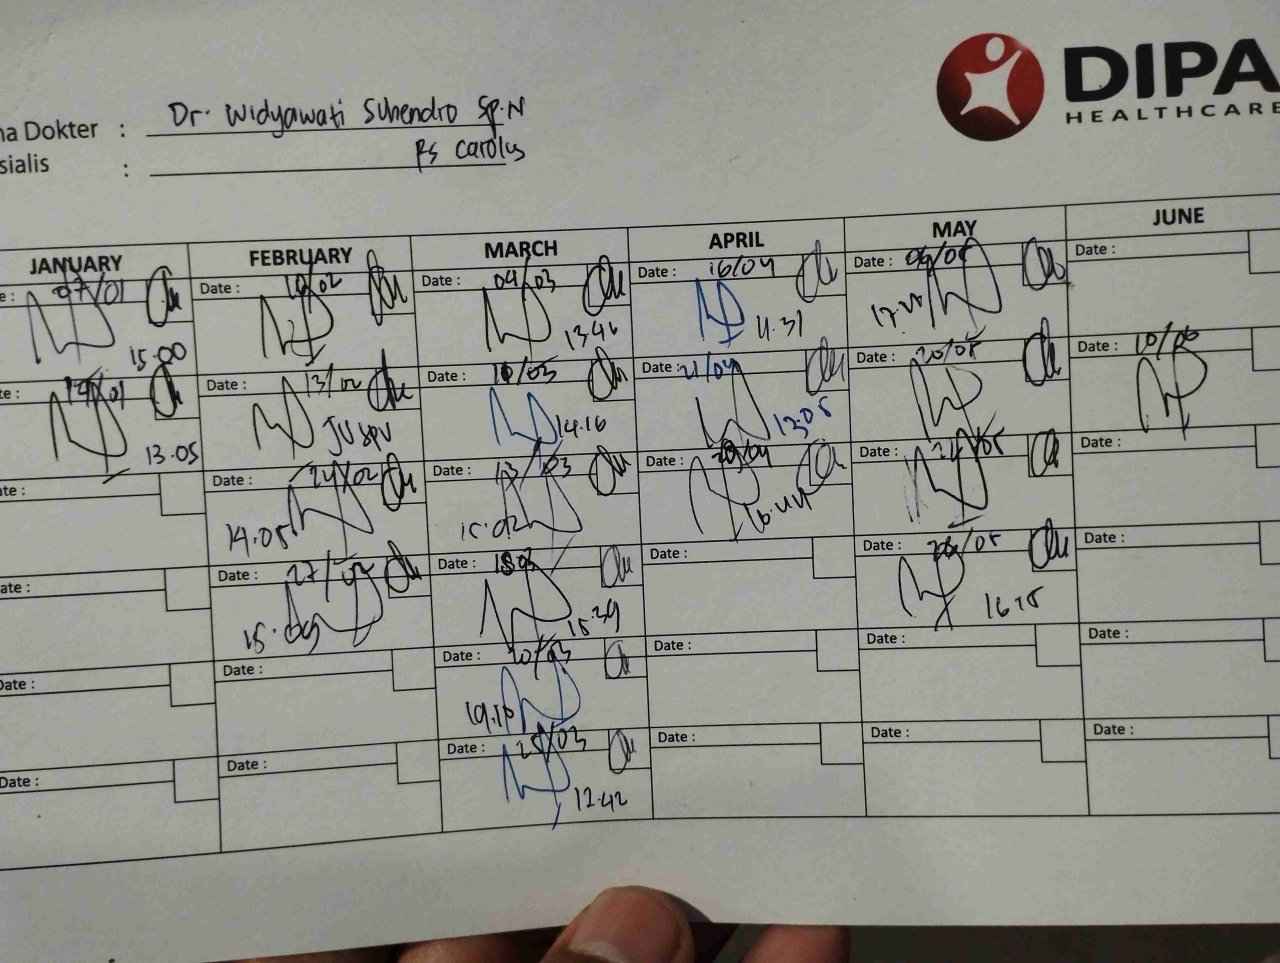 DIPA
HEALTHCARE
na Dokter : Dr. Widyawati Suhendro Sp.N
sialis : RS Carolus
JANUARY FEBRUARY MARCH APRIL MAY JUNE
e : 07/01 Date : 10/02 Date : 04/03 Date : 16/04 Date : Date :
15.00 13.46 11.31
te : 14/01 Date : 13/02 Date : 10/03 Date : 21/04 Date : 20/05 Date : 10/06
13.05 14.16 13.05
ate : Date : 24/02 Date : 13/03 Date : 29/04 Date : Date :
14.05 15.02 16.44
ate : Date : 27/02 Date : 18 03 Date : Date : Date :
15.09 15.39 16.15
Date : Date : Date : 20/03 Date : Date : Date :
19.10
Date : Date : Date : 25/03 Date : Date : Date :
12.42